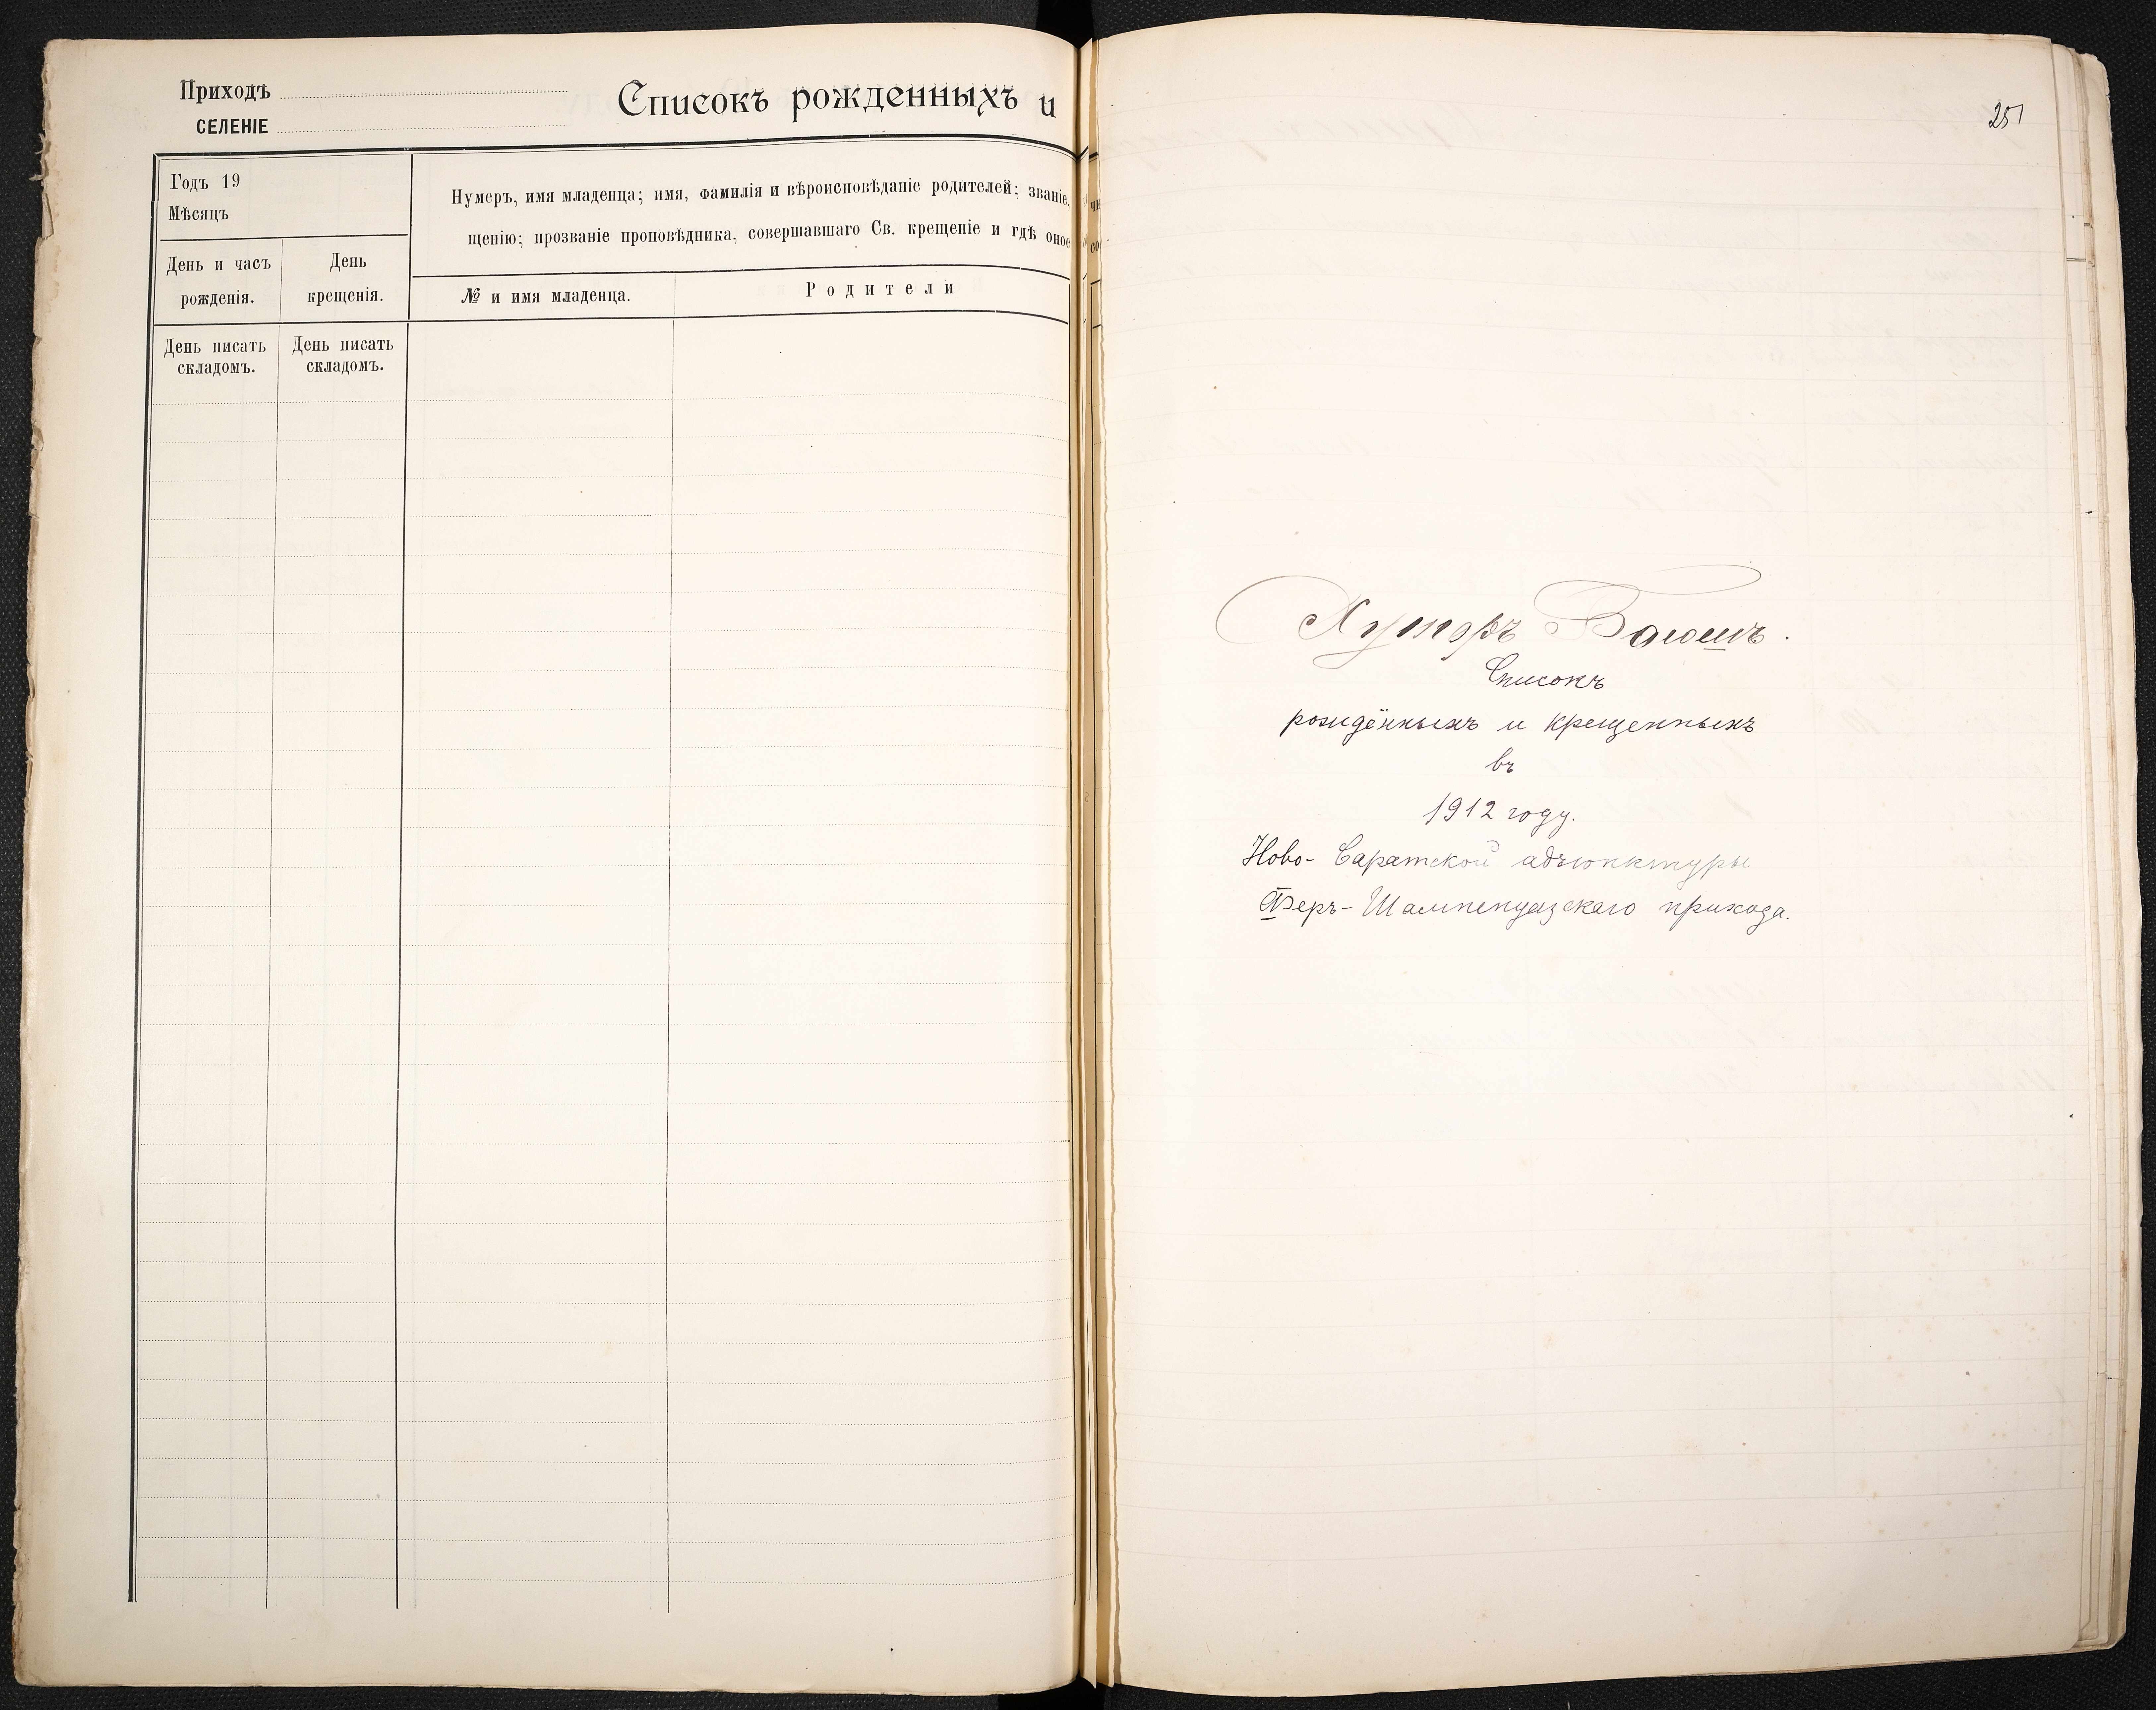 Приходъ
СЕЛЕНІЕ
Списокъ рожденныхъ и
Годъ 19
Мѣсяцъ
Нумеръ, имя младенца; имя, фамилія и вѣроисповѣданіе родителей; званіе,
щенію; прозваніе проповѣдника, совершавшаго Св. крещеніе и гдѣ оное
День и часъ
рожденія.
День
крещенія.
№ и имя младенца.
Родители
День писать
складомъ.
День писать
складомъ.
251
Хуторъ
Списокъ
рождённыхъ и крещенныхъ
въ
1912 году.
Ново-Саратской адъюнктуры
Феръ-Шампенуазскаго прихода.